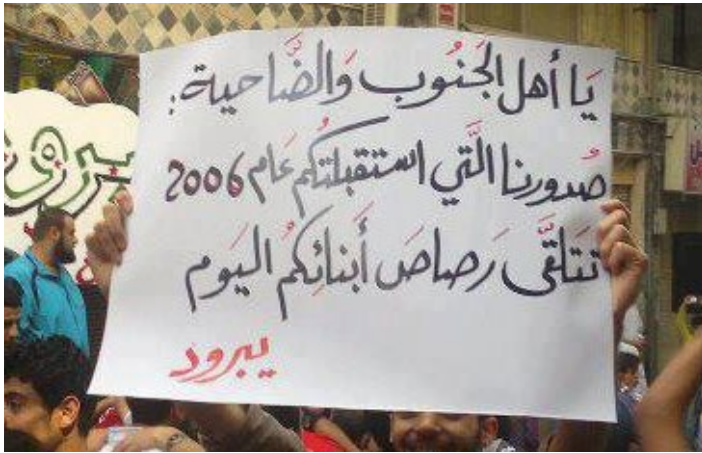 يَا أهل الجَنُوب وَالضَّاحية:
صُدورنا الَّتي استقبلتكُم عَام 2006
تَتلقَّى رَصاصَ أَبنائِكُم اليَوم
يبرود